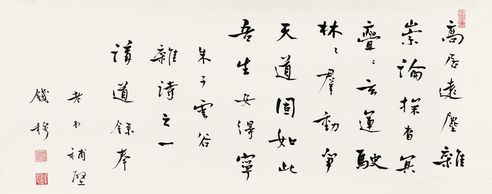 高居遠塵雜
崇論探杳冥
亹〻玄運駛
林〻群動爭
天道固如此
吾生安得寧
朱子雲谷
雜詩之一
講道錄奉
補壁
錢穆